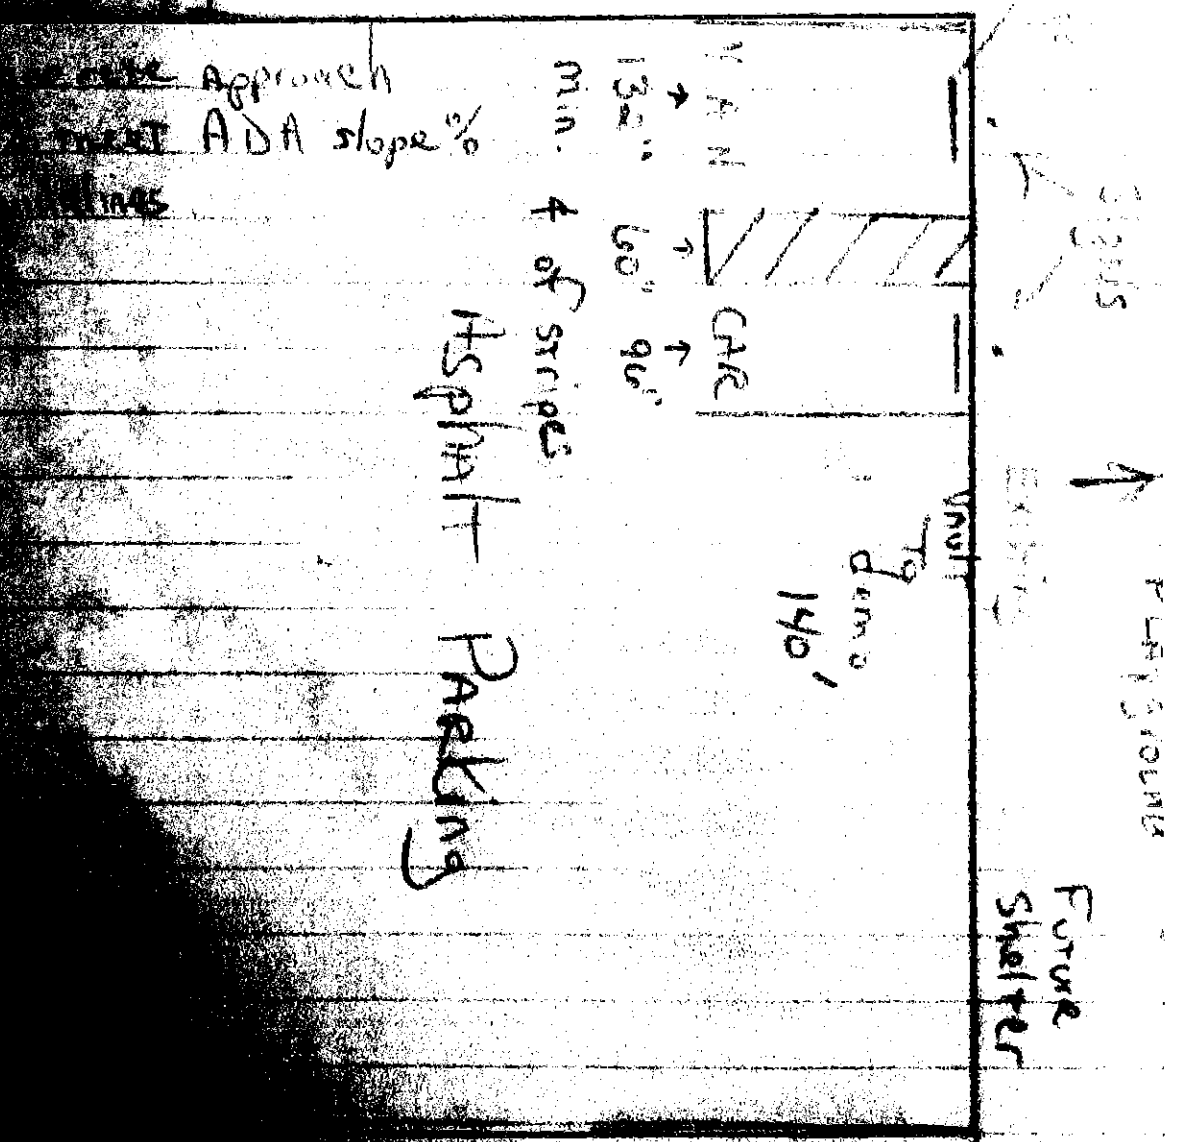 Approach
meet ADA slope %
VAN
132"
min.
60"
CAR
96"
¢ of stripes
Asphalt Parking
Signs
Vault
To
demo
140'
Playground
Future
Shelter